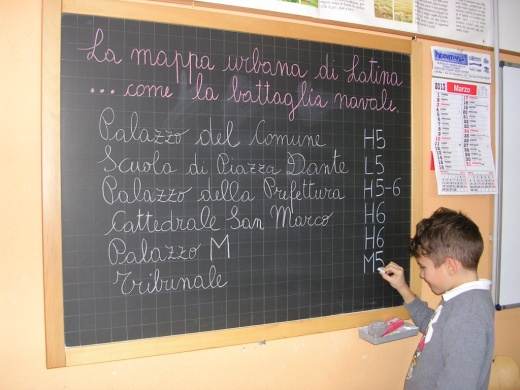 La mappa urbana di Latina
... come la battaglia navale.
Palazzo del Comune H5
Scuola di Piazza Dante L5
Palazzo della Prefettura H5-6
Cattedrale San Marco H6
Palazzo M H6
Tribunale M5
2013 Marzo